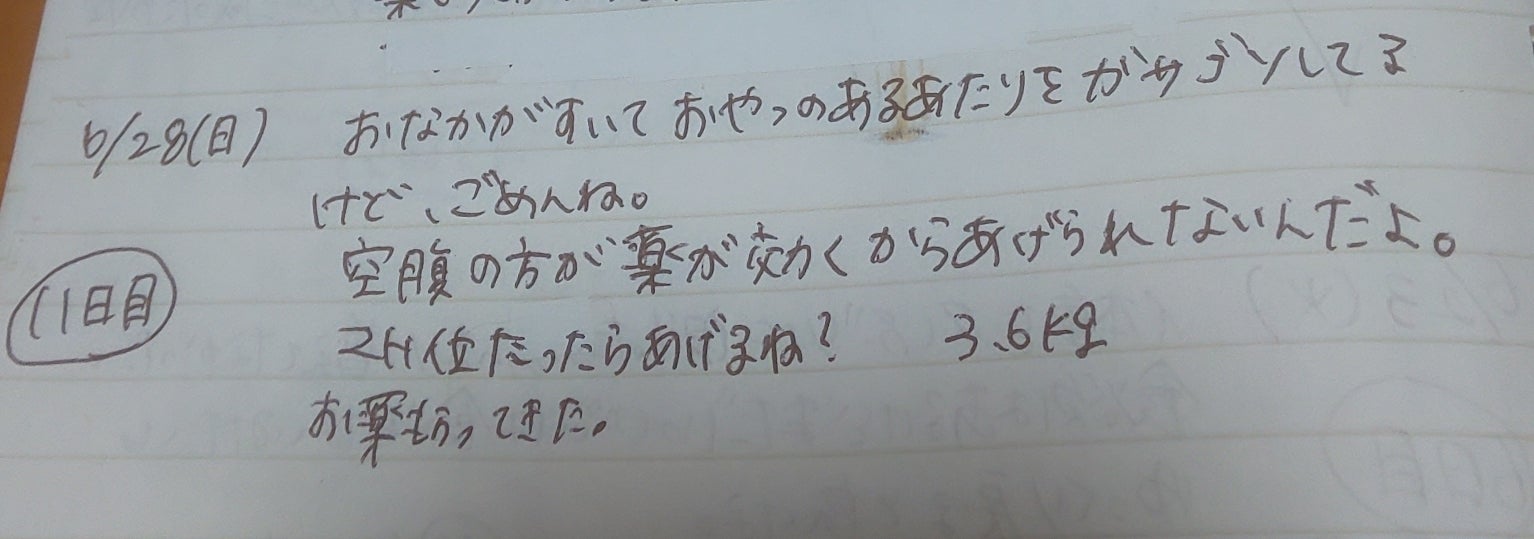 6/28(日) おなかがすいておやつのあるあたりをガサゴソしてる
けど、ごめんね。
空腹の方が薬が効くからあげられてないんだよ。
11日目
2H位たったらあげるね? 3.6kg
お薬もらってきた。